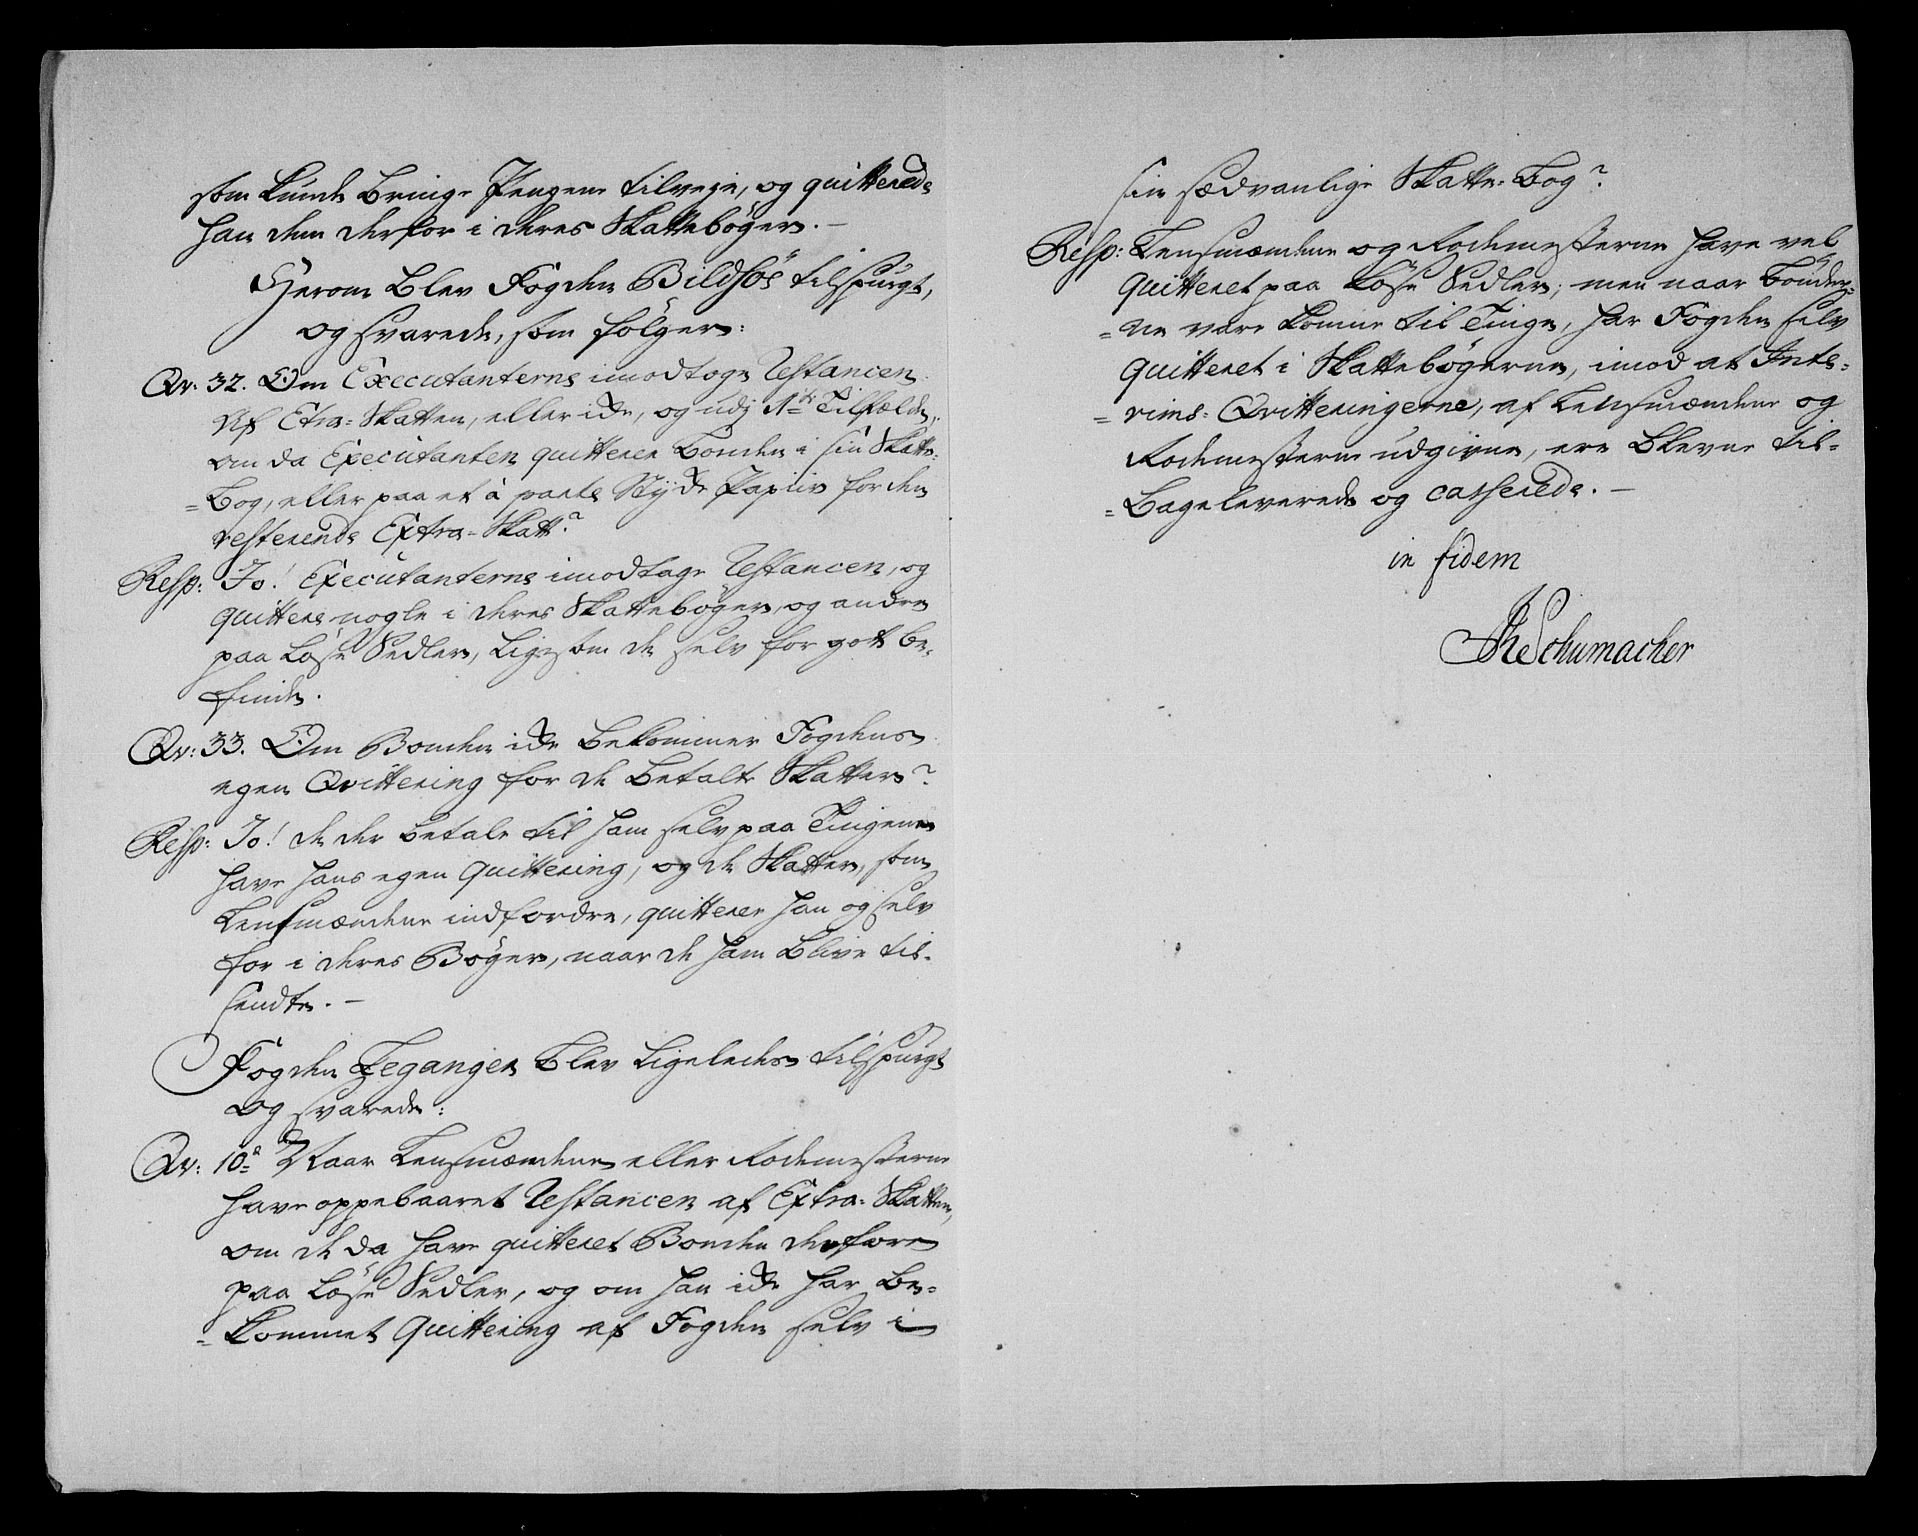 som kunde bringe Pengene tilveje, og quitterede
han dem derfor i deres Skattebøger. –
Herom blev Fogden Bildsöe tilspurgt,
og svarede, som følger:
Qv: 32. Om Executanterne imodtoge Restancen
Af Extra-Skatten, eller icke, og udj 1te Tilfælde,
om da Executanten quitterer Bonden i sin Skatte-
=Bog, eller paa et à parte Stÿcke Papiir for den
resterende Extra-Skatt?
Resp: Jo! Executanterne imodtage Restancen, og
quittere nogle i deres Skattebøger, og andre
paa løse Sedler, ligesom de selv for godt be-
finde.
Qv: 33. Om Bonden icke bekommer Fogdens
egen Qvittering for de betalte Skatter?
Resp: Jo! de der betale til ham selv paa Tingene
have hans egen Quittering, og de Skatter, som
Lensmændene indfordre, quitterer han og selv
for i deres Bøger, naar de ham blive til-
sendte. –
Fogden Fegangen blev ligeledes tilspurgt
og svarede:
Qv: 10de Naar Lensmændene eller Rodemesterne
have oppebaaret Restancen af Extra-Skatten,
om de da have quitteret Bonden derfore
paa løse Sedler, og om han icke har be-
=kommet Quittering af Fogden selv i
sin sædvanlige Skatte-Bog?
Resp: Lensmændene og Rodemesterne have vel
quitteret paa løse Sedler; men naar bönder-
=ne vare komne til Tinge, har Fogden selv
quitteret i Skattebøgerne, imod at Inte-
=rims-Qvitteringerne, af Lensmændene og
Rodemesterne udgivne, ere blevne til-
=bageleverede og casserede. –
in fidem
Schumacher